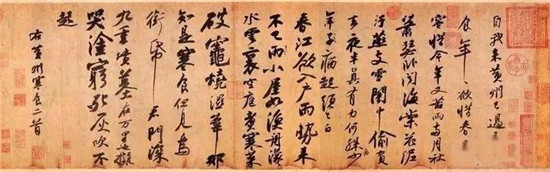 自我來黃州已過三寒
食年年欲惜春春去不
容惜今年又苦雨兩月秋
蕭瑟卧聞海棠花泥
汙燕支雪闇中偷負
去夜半真有力何殊少
年子病起頭已白
春江欲入户雨勢來
不已小屋如漁舟濛濛
水雲裏空庖煮寒菜
破竈燒濕葦那
知是寒食但見烏
銜帋君門深
九重墳墓在万里也擬
哭塗窮死灰吹不
起
右黃州寒食二首